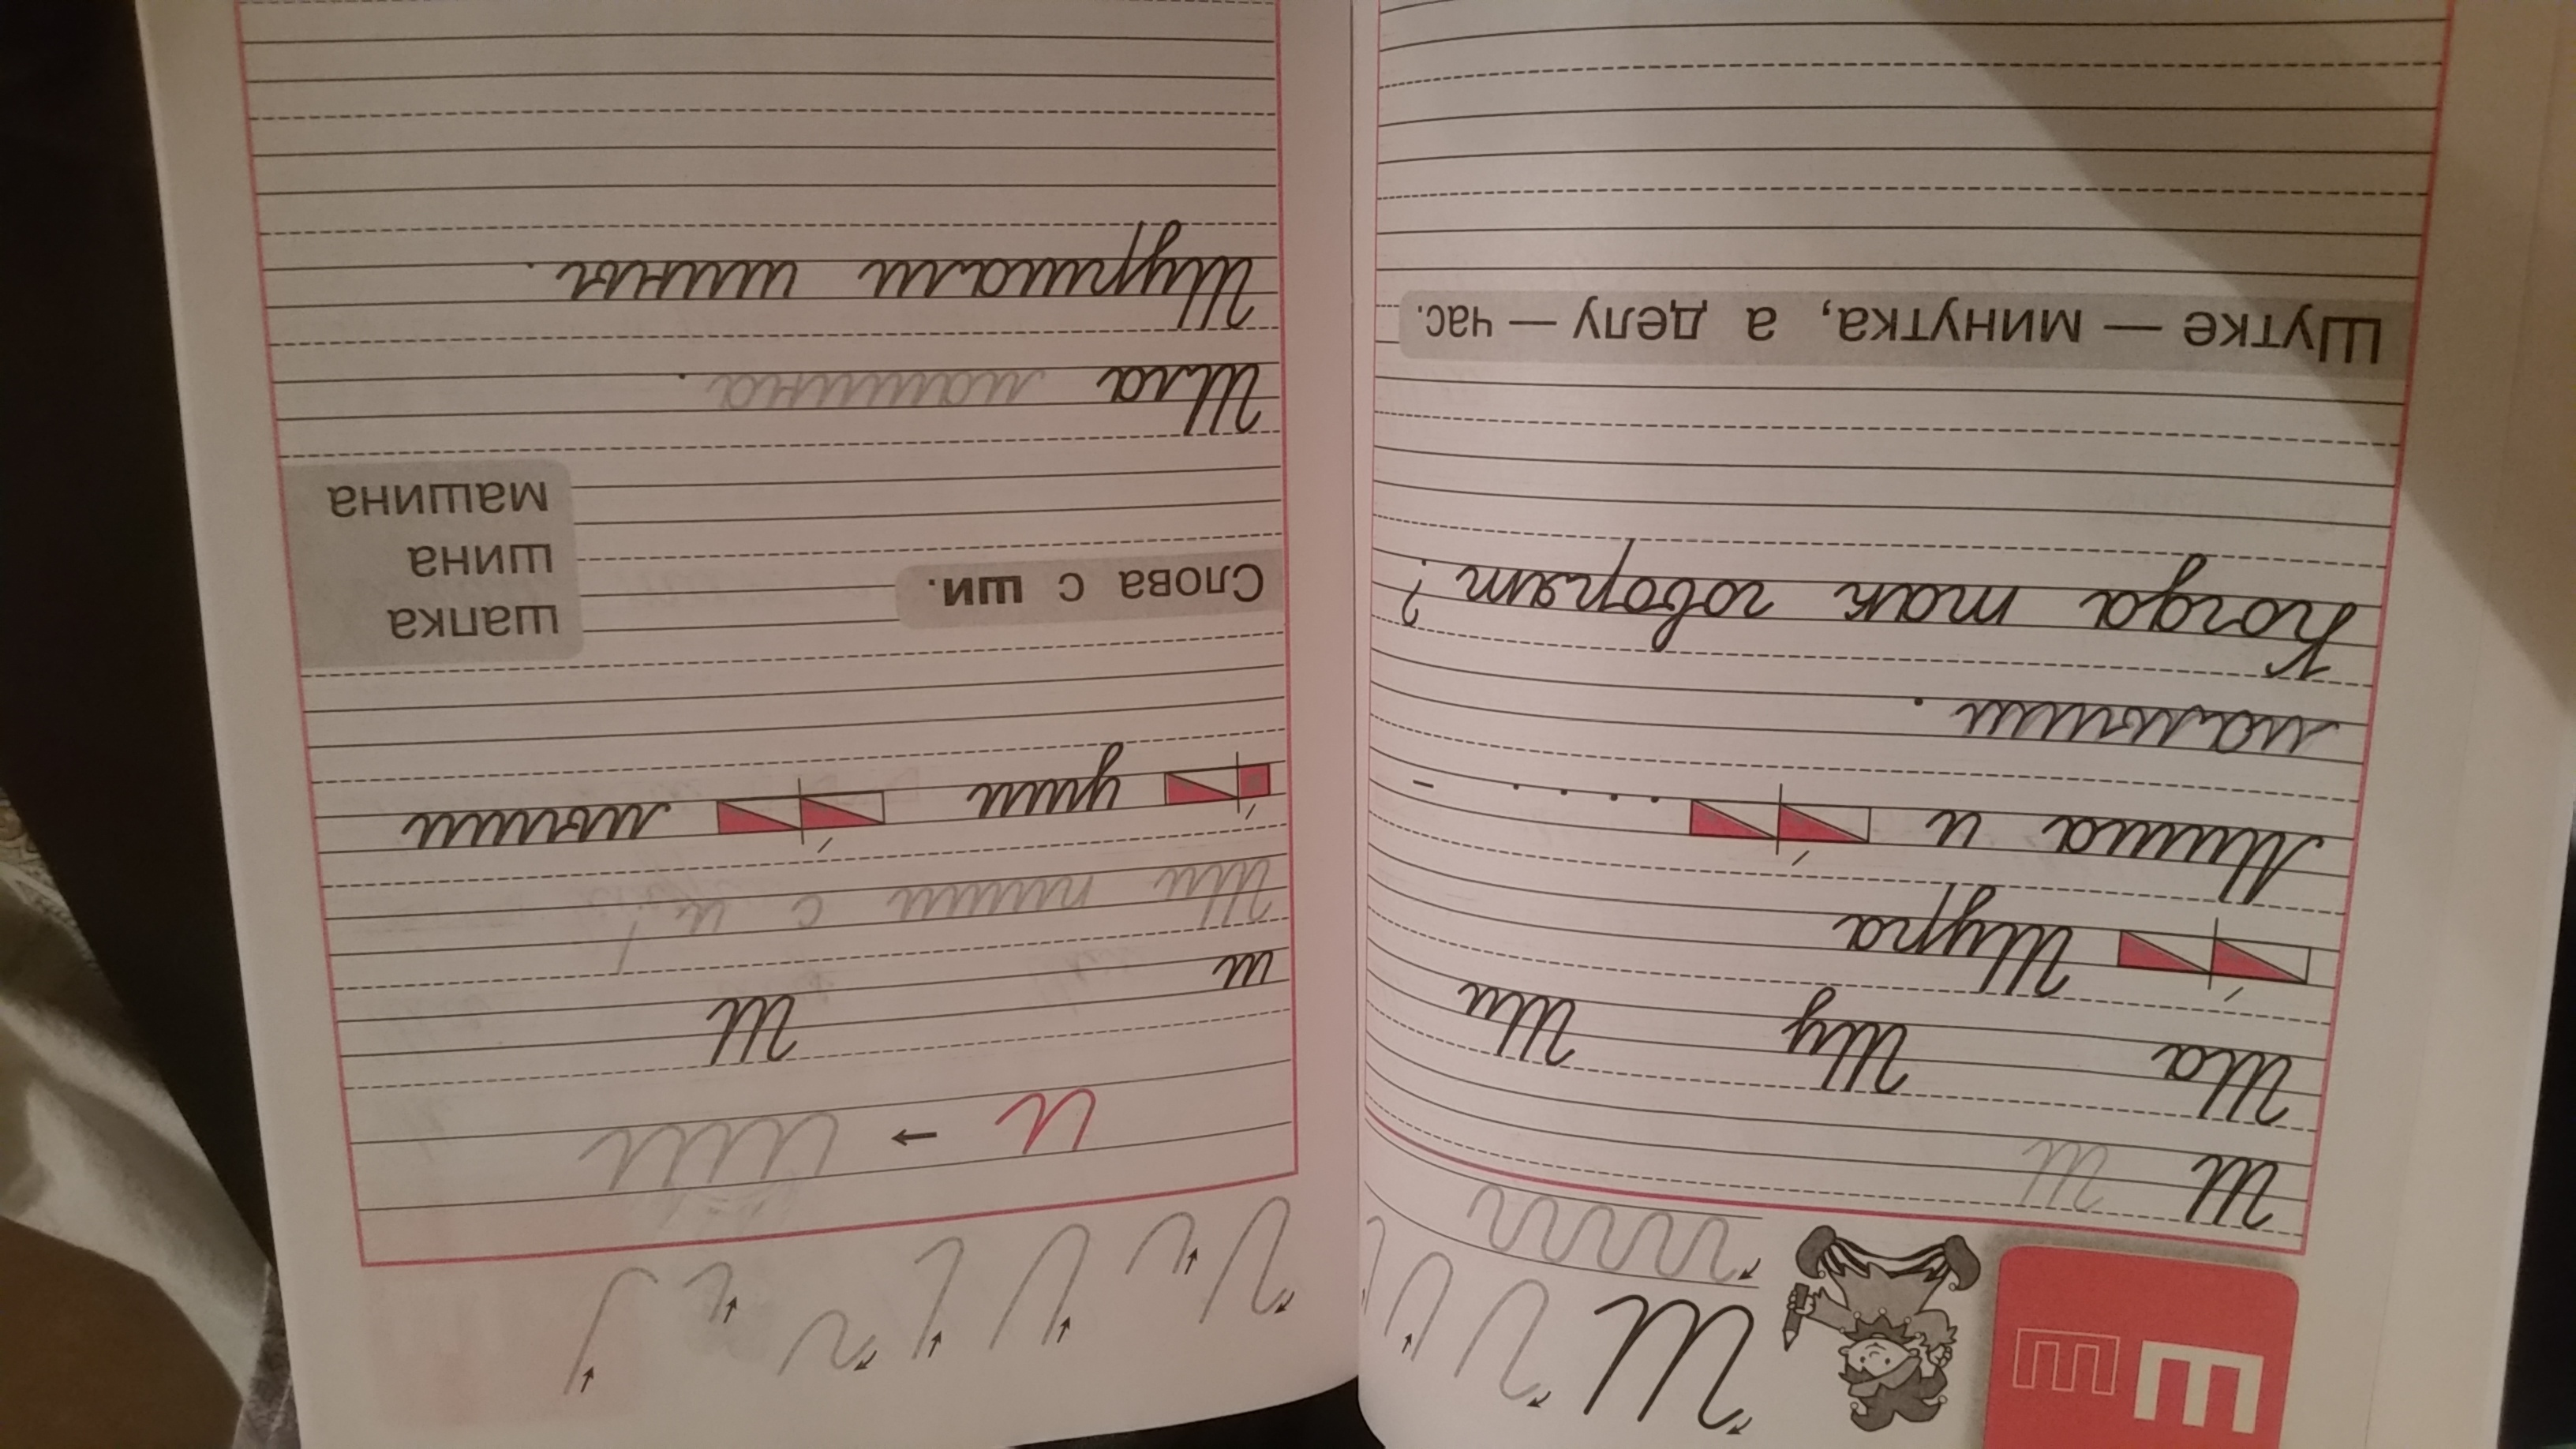 Ш ш
Ш
Ш Ш
Ша Шу Ши
Шура
Миша и . . . . –
малыши.
Когда так говорят?
Шутке — минутка, а делу — час.
и → ш
ш Ш
Ши пиши с и!
уши мыши
Слова с ши.
шапка
шина
машина
Шла машина.
Шуршали шины.